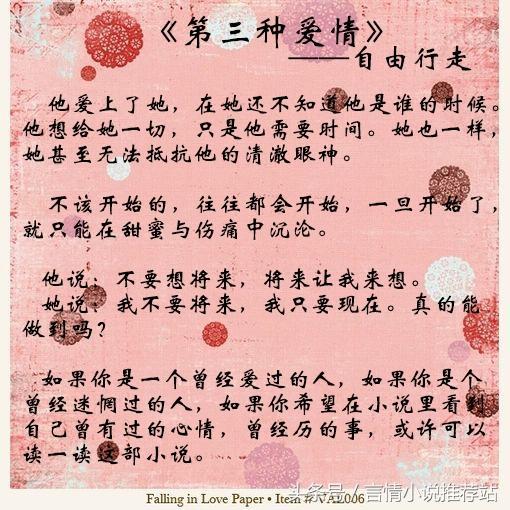 《第三种爱情》
——自由行走
他爱上了她，在她还不知道他是谁的时候。
他想给她一切，只是他需要时间。她也一样，
她甚至无法抵抗他的清澈眼神。
不该开始的，往往都会开始，一旦开始了，
就只能在甜蜜与伤痛中沉沦。
他说：不要想将来，将来让我来想。
她说：我不要将来，我只要现在。真的能
做到吗？
如果你是一个曾经爱过的人，如果你是个
曾经迷惘过的人，如果你希望在小说里看到
自己曾有过的心情，曾经历的事，或许可以
读一读这部小说。
Falling in Love Paper • Item # VAL006
头条号／言情小说推荐站